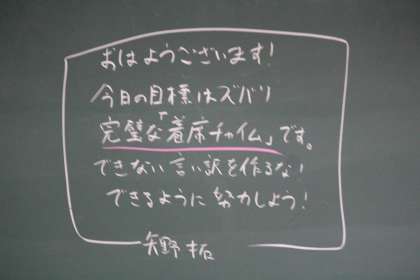 おはようございます!
今日の目標はズバリ
完璧な「着席チャイム」です。
できない言い訳を作るな!
できるように努力しよう!
矢野拓